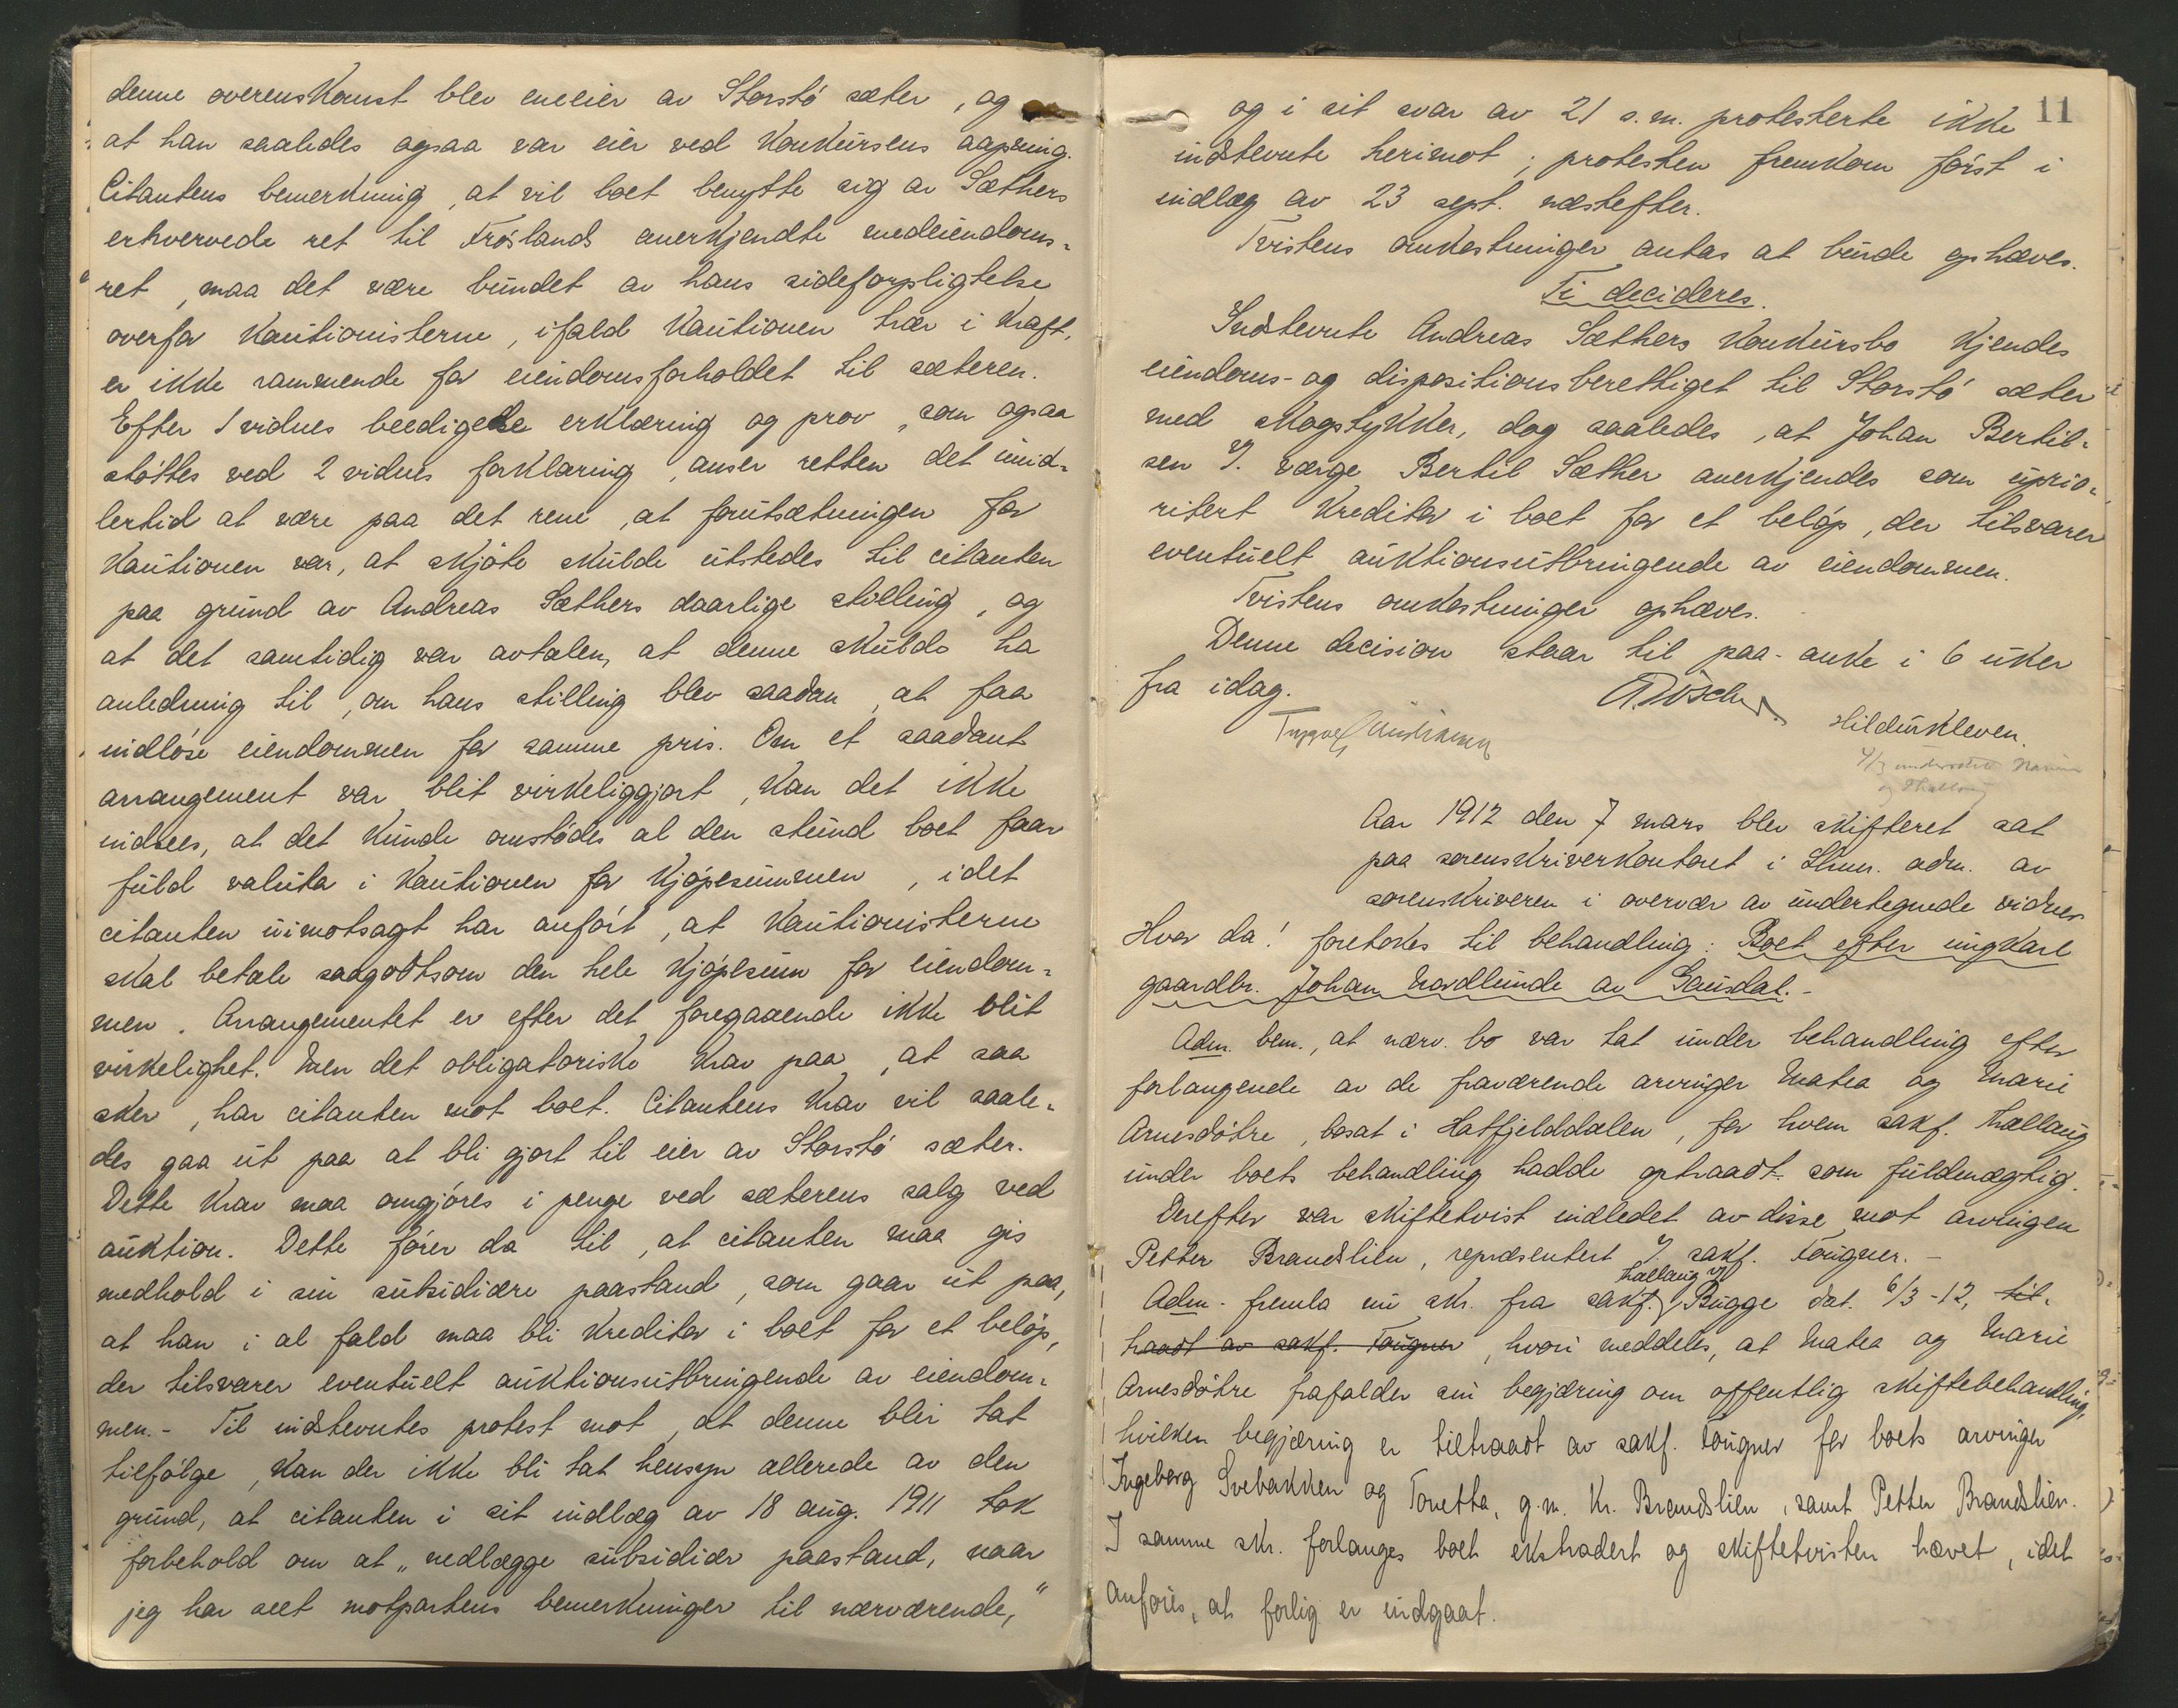 denne overenskomst blev eneeier av Storstø sæter, og
at han saaledes ogsaa var eier ved konkursens aapning.
Citantens bemerkning, at vil boet benytte sig av Sæthers
erhvervede ret til Frøslands anerkjendte medeiendoms-
ret, maa det være bundet av hans sideforpligtelse
overfor kautionisterne, ifald kautionen trær i kraft,
er ikke rammende for eiendomsforholdet til sæteren.
Efter 1 vidnes beedigede erklæring og prov, som ogsaa
støttes ved 2 vidnes forklaring, anser retten det imid-
lertid at være paa det rene, at forutsætningen for
kautionen var, at skjøte skulde utstedes til citanten
paa grund av Andreas Sæthers daarlige stilling, og
at det samtidig var avtalen, at denne skulde ha
anledning til, om hans stilling blev saadan, at faa
indløse eiendommen for samme pris. Om et saadant
arrangement var blit virkeliggjort, kan det ikke
indsees, at det kunde omstødes al den stund boet faar
fuld valuta i kautionen for kjøpesummen, idet
citanten uimotsagt har anført, at kautionisterne
skal betale saagodtsom den hele kjøpesum for eiendom-
men. Arrangementet er efter det foregaaende ikke blit
virkelighet. Men det obligatoriske krav paa, at saa
sker, har citanten mot boet. Citantens krav vil saale-
des gaa ut paa at bli gjort til eier av Storstø sæter.
Dette krav maa omgjøres i penge ved sæterens salg ved
auktion. Dette fører da til, at citanten maa gis
medhold i sin subsidiære paastand, som gaar ut paa,
at han i al fald maa bli kreditor i boet for et beløp,
der tilsvarer eventuelt auktionsutbringende av eiendom-
men.- Til indstevntes protest mot, at denne blir tat
tilfølge, kan der ikke bli tat hensyn allerede av den
grund, at citanten i sit indlæg av 18 aug. 1911 tok
forbehold om at „nedlægge subsidiær paastand, naar
jeg har seet motpartens bemerkninger til nærværende,"
11
og i sit svar av 21 s.m. protesterte ikke
indstevnte herimot; protesten fremkom først i
indlæg av 23 sept. næstefter.
Tvistens omkostninger antas at burde ophæves.
Ti decideres.
Indstevnte Andreas Sæthers konkursbo kjendes
eiendoms- og dispositionsberettiget til Storstø sæter
med skogstykker, dog saaledes, at Johan Bertil-
sen v. værge Bertil Sæther anerkjendes som uprio-
ritert kreditor i boet for et beløp, der tilsvarer
eventuelt auktionsutbringende av eiendommen.
Tvistens omkostninger ophæves.
Denne decision staar til paa-anke i 6 uker
fra idag.
Hildurkleven.
Aar 1912 den 7 mars blev skifteret sat
paa sorenskriverkontoret i Lhmr. adm. av
sorenskriveren i overvær av undertegnede vidner
Hvor da! foretokes til behandling: Boet efter ungkarl
gaardbr. Johan Nordlunde av Gausdal.-
Adm. bem., at nærv. bo var tat under behandling efter
forlangende av de fraværende arvinger Matea og Marie
Arnesdøtre, bosat i Hatfjelddalen, for hvem sakf. Thallaug
under boets behandling hadde optraadt som fuldmægtig.
Derefter var skiftetvist indledet av disse mot arvingen
Petter Brandslien, repræsentert v. sakf. Tougner.-
Thallaug v/
Adm. fremla nu skr. fra sakf. Bugge dat. 6/3-12, til-
traadt av sakf. Tougner, hvori meddeles, at Matea og Marie
Arnesdøtre frafalder sin begjæring om offentlig skiftebehandling,
hvilken begjæring er tiltraadt av sakf. Tougner for boets arvinger
Ingeborg Svebakken og Tonetta, g.m. Kr. Brandslien, samt Petter Brandslien.
I samme skr. forlanges boet ekstradert og skiftetvisten hævet, idet
anføres, at forlig er indgaat.